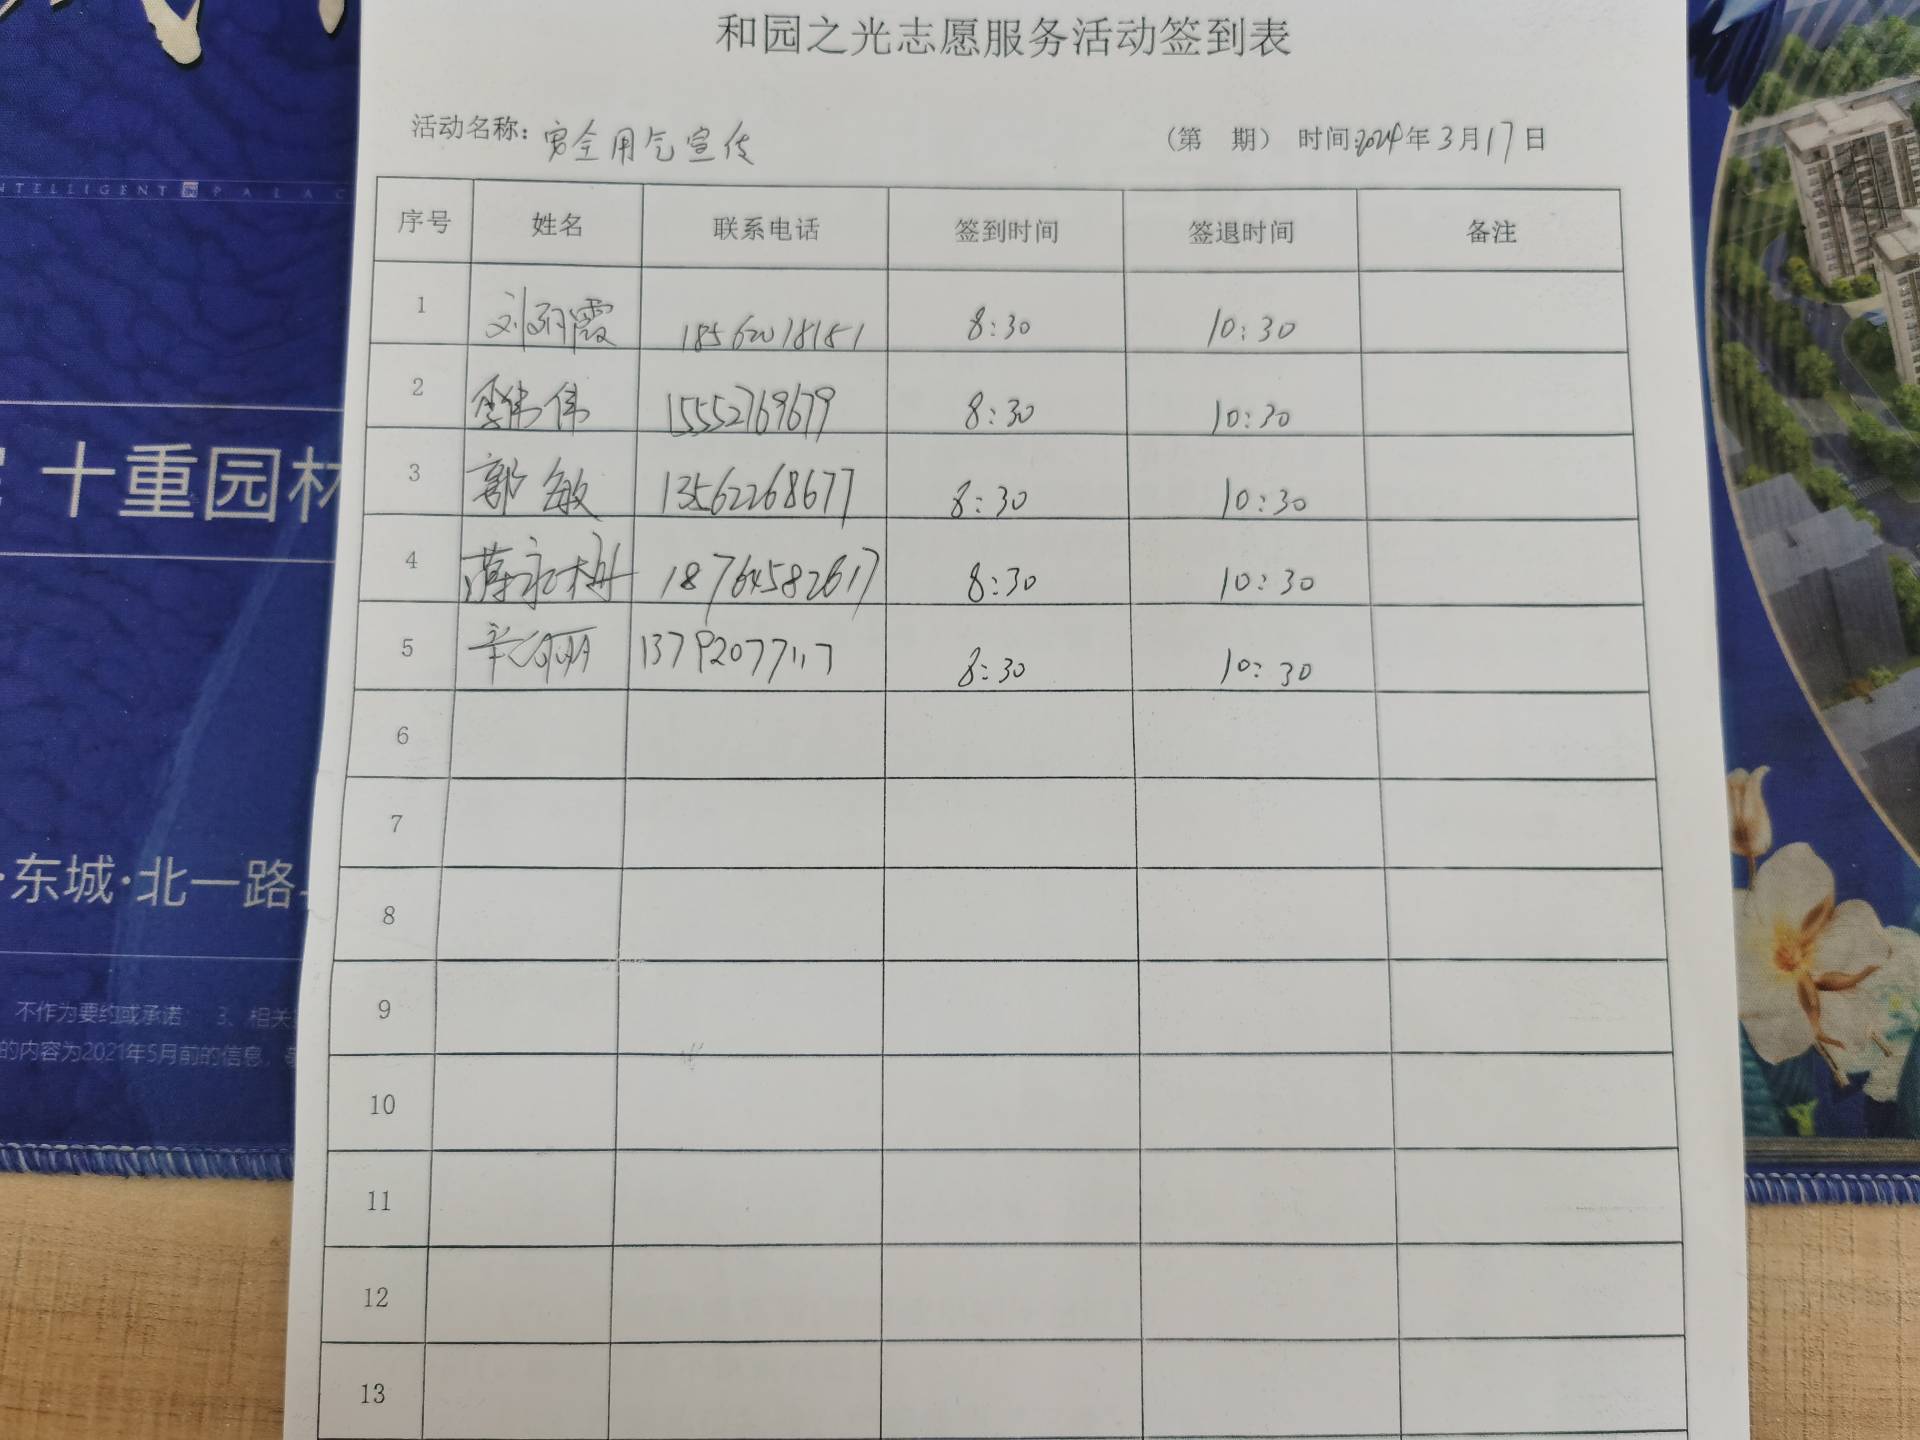 和园之光志愿服务活动签到表
活动名称: 安全用气宣传 (第 期) 时间:2024年3月17日
序号 姓名 联系电话 签到时间 签退时间 备注
1 刘丽霞 18562018181 8:30 10:30
2 李伟伟 15552769679 8:30 10:30
3 郭敏 13562268677 8:30 10:30
4 薛永梅 18764582617 8:30 10:30
5 13792077117 8:30 10:30
6
7
8
9
10
11
12
13
INTELLIGENT PALAC
十重园林
·东城·北一路
不作为要约或承诺; 3、相关
的内容为2021年5月前的信息,